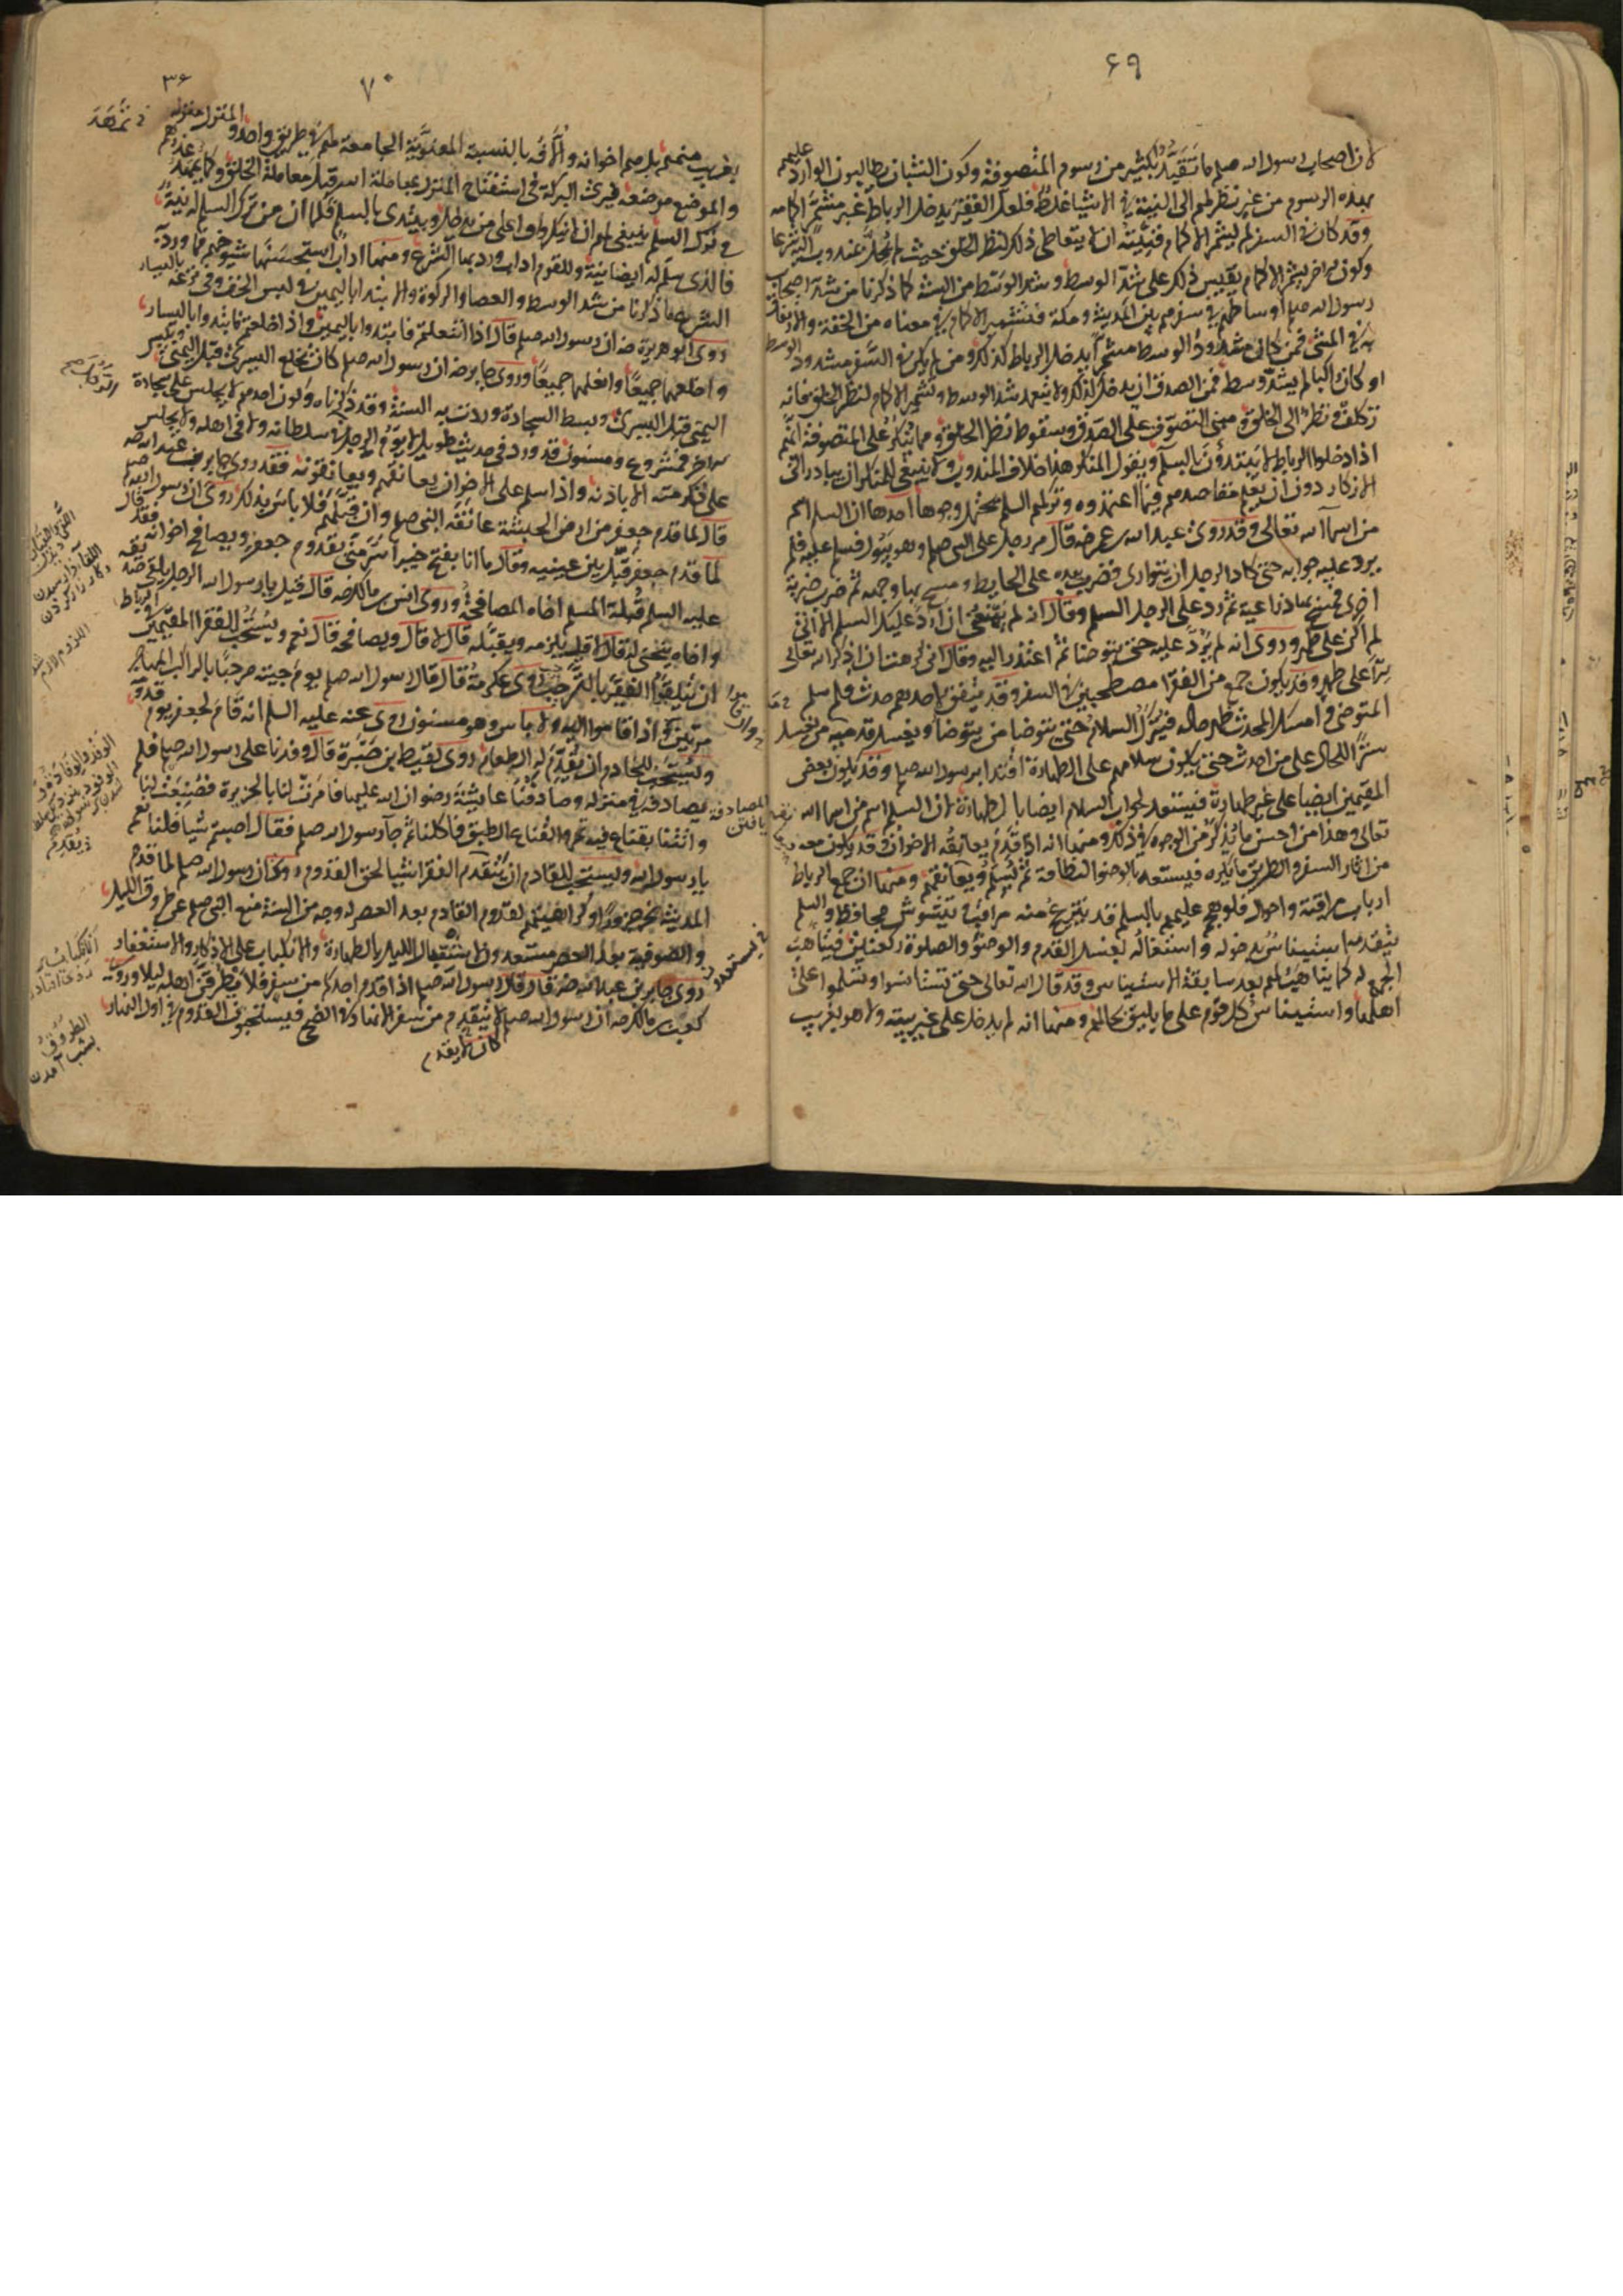 ۶۹
لان اصحاب رسول الله صلم ما تقيدوا بكثير من رسوم المتصوفة وكون الشبان يطالبون الوارد عليهم
بهذه الرسوم من غير نظر لهم الى النية في الاشيا غلط فلعل الفقير يدخل الرباط غير مشمر اكمامه
وقد كان في السفر لم يشمر الاكمام فنيته ان لا يتعاطى ذلك لنظر الخلق حيث لم يخل بمندوب اليه شرعا
وكون الاخر يشمر الاكمام يقيس ذلك على شد الوسط وشد الوسط من السنة كما ذكرنا من شد اصحاب
رسول الله صلم اوساطهم في سفرهم بين المدينة ومكة فتشمير الاكمام في معناه من الخفة والارتفاق
به في المشي فمن كان مشدود الوسط مشمرا يدخل الرباط كذلك ومن لم يكن في السفر مشدود الوسط
او كان راكبا لم يشد وسطه فمن الصدق ان يدخل كذلك ولا يتعمد شد الوسط وتشمير الاكمام لنظر الخلق فانه
تكلف ونظر الى الخلق ومبنى التصوف على الصدق وسقوط نظر الخلق ومما ينكر على المتصوفة انهم
اذا دخلوا الرباط لا يبتدؤن بالسلم ويقول المنكر هذا خلاف المندوب ولا ينبغي للمنكر ان يبادر الى
الانكار دون ان يعلم مقاصدهم فيما اعتمدوه وتركهم السلم يحتمل وجوها احدها ان السلم اسم
من اسماء الله تعالى وقد روى عبد الله بن عمر رضه قال مر رجل على النبي صلم وهو يبول فسلم عليه فلم
يرد عليه جوابه حتى كاد الرجل ان يتوارى فضرب بيده على الحايط ومسح بها وجهه ثم ضرب ضربة
اخرى فمسح بها ذراعيه ثم رد على الرجل السلم وقال انه لم يمنعني ان ارد عليك السلم الا اني
لم اكن على طهر وروى انه لم يرد عليه حتى توضا ثم اعتذر اليه وقال اني كرهت ان اذكر الله تعالى
الا على طهر وقد يكون جمع من الفقرا مصطحبين في السفر وقد يتفق لاحدهم حدث فلو سلم
المتوضى وامسك المحدث ظهر حاله فيترك السلام حتى يتوضا من يتوضا ويغسل قدميه من يغسل
سترا للحال على من احدث حتى يكون سلامهم على الطهارة اقتدا برسول الله صلم وقد يكون بعض
المقيمين ايضا على غير طهارة فيستعد لجواب السلام ايضا بالطهارة لان السلم اسم من اسما الله
تعالى وهذا من احسن ما يذكر من الوجوه في ذلك ومنها انه اذا قدم يعانقه الاخوان وقد يكون معه
من اثار السفر والطريق ما يكره فيستعد بالوضو والنظافة ثم يسلم ويعانقهم ومنها ان جمع الرباط
ارباب مراقبة واحوال فلو هجم عليهم بالسلم قد ينزعج منه مراقب ويتشوش محافظ والسلم
يتقدمه استيناس بدخوله واشتغاله بغسل القدم والوضو والصلوة ركعتين فيتاهب
الجمع له كما يتاهب لهم بعد سابقة الاستيناس وقد قال الله تعالى حتى تستانسوا وتسلموا على
اهلها واستيناس كل قوم على ما يليق بحالهم ومنها انه لم يدخل على غير بيته ولا هو بغريب
۷۰
۳۶
بغريب منهم بل هم اخوانه والالفة بالنسبة المعنوية الجامعة لهم في طريق واحد والمنزل منزله
والموضع موضعه فيرى البركة في استفتاح المنزل بمعاملة الله قبل معاملة الخلق وكما يمهد عذرهم
في ترك السلم ينبغي لهم ان لا ينكروا على من يدخل ويبتدى بالسلم فكما ان من ترك السلم له نية
فالذي سلم له ايضا نية وللقوم اداب ورد بها الشرع ومنها اداب استحسنها شيوخهم فما ورد به
الشرع ما ذكرنا من شد الوسط والعصا والركوة والابتدا باليمين في لبس الخف وفي نزعه باليسار
روى ابو هريرة رضه ان رسول الله صلم قال اذا انتعلتم فابتدوا باليمين واذا خلعتم فابتدوا باليسار
واخلعهما جميعا وانعلهما جميعا وروى جابر رضه ان رسول الله صلم كان يخلع اليسرى قبل اليمنى ويلبس
اليمنى قبل اليسرى وبسط السجادة وردت به السنة وقد ذكرناه وكون احدهم لا يجلس على سجادة
الاخر فمشروع ومسنون قد ورد في حديث طويل لا يوم الرجل في سلطانه ولا في اهله ولا يجلس
على تكرمته الا باذنه واذا سلم على الاخوان يعانقهم ويعانقونه فقد روى جابر بن عبد الله رضه
قال لما قدم جعفر من ارض الحبشة عانقه النبي صلم وان قبلهم فلا باس بذلك روى ان رسول الله صلم
لما قدم جعفر قبل بين عينيه وقال ما انا بفتح خيبر اسر مني بقدوم جعفر ويصافح اخوانه فقد قال
عليه السلم قبلة المسلم اخاه المصافحة وروى انس بن مالك رضه قال قيل يا رسول الله الرجل يلقى صديقه
واخاه ينحني له قال لا قيل يلزمه ويقبله قال لا قال ويصافحه قال نعم ويستحب للفقرا المقيمين في الرباط
ان يتلقوا الفقير بالترحيب روى عكرمة قال قال رسول الله صلم يوم جيته مرحبا بالراكب المهاجر
مرتين وان قاموا اليه ولا باس وهو مسنون روى عنه عليه السلم انه قام لجعفر يوم قدومه
ويستحب للخادم ان يقدم له الطعام روى لقيط بن صبرة قال وفدنا على رسول الله صلم فلم
نصادفه في منزله وصادفنا عايشة رضوان الله عليها فامرت لنا بالحزيرة فصنعت لنا
واتتنا بقناع فيه تمر والقناع الطبق فاكلنا ثم جا رسول الله صلم فقال اصبتم شيا قلنا نعم
يا رسول الله ويستحب للقادم ان يقدم للفقرا شيا لحق القدوم وورد ان رسول الله صلم لما قدم
المدينة نحر جزورا وكراهيتهم لقدوم القادم بعد العصر له وجه من السنة منع النبي صلم عن طروق الليل
والصوفية بعد العصر يستعدون لاستقبال الليل بالطهارة والانكباب على الاذكار والاستغفار
روى جابر بن عبد الله رضه قال قال رسول الله صلم اذا قدم احدكم من سفر فلا يطرقن اهله ليلا وروى
كعب بن مالك رضه ان رسول الله صلم لا يقدم من سفر الا نهارا في الضحى فيستحبون القدوم في اول النهار
كان لا يقدم
المصادفة يافتن
الطروق بشب آمدن